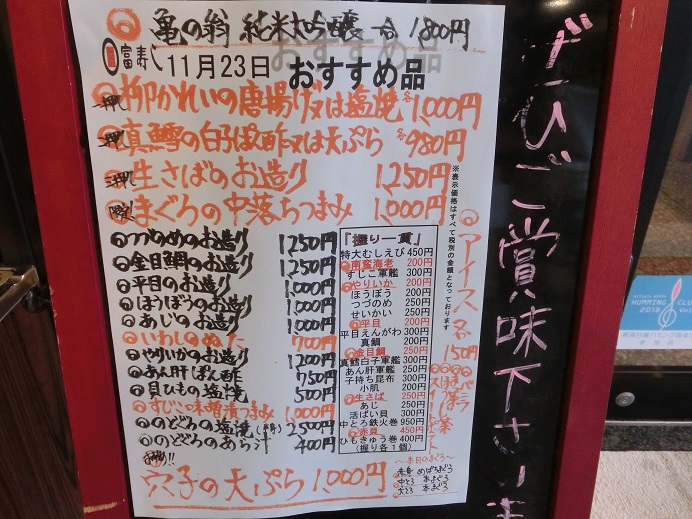 亀の翁 純米大吟醸 一合 1800円
富寿し 11月23日 おすすめ品
柳かれいの唐揚げ又は塩焼 各1,000円
真鱈の白子ぽん酢又は天ぷら 各980円
生さばのお造り 1,250円
まぐろの中落ちつまみ 1,000円
つづのめのお造り 1250円
金目鯛のお造り 1250円
平目のお造り 1,000円
ほうぼうのお造り 1,000円
あじのお造り 1,000円
いわしのぬた 700円
やりいかのお造り 1200円
あん肝ぽん酢 750円
貝ひもの塩焼 500円
すじこの味噌漬つまみ 1,000円
のどぐろの塩焼(半身) 2,500円
のどぐろのあら汁 400円
穴子の天ぷら 1,000円
「握り一貫」
特大むしえび 450円
南蛮海老 200円
すじこ軍艦 300円
やりいか 200円
ほうぼう 200円
つづのめ 250円
せいかい 250円
平目 200円
平目えんがわ 300円
真鯛 200円
金目鯛 250円
真鱈白子軍艦 300円
あん肝軍艦 300円
子持ち昆布 300円
小肌 200円
生さば 250円
あじ 250円
活ばい貝 300円
中とろ鉄火巻 950円
赤貝 450円
ひもきゅう巻 400円
(握り各1個)
※表示価格はすべて税別の金額となっております
アイス 各150円
バニラ
~本日のまぐろ~
赤身 めばちまぐろ
中とろ 本まぐろ
大とろ 本まぐろ
ぜひご賞味下さいま
HUMMING CLUB
2018